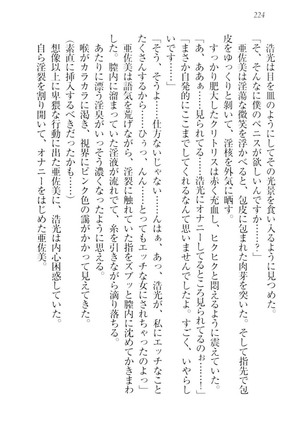 224
浩光は目を皿のようにしてその光景を食い入るように見つめた。
「そんなに僕のペニスが欲しいんですか？」
亜佐美は淫蕩な微笑を浮かべると、包皮に包まれた肉芽を突いた。そして指先で包
皮をゆっくりと剝いて、淫核を外気に晒す。
すっかり肥大したクリトリスは赤く充血し、ヒクヒクと悶えるように震えていた。
「あ、ああぁ……見られてる……浩光にオナニーしてるところ見られてるのぉ……！」
「まさか自発的にここまでしてくれるなんて思いませんでしたよ。すごく、いやらし
いです……」
「そう、そうよ……仕方ないじゃない……んはぁ、あっ、浩光が、私にエッチなこと
たくさんするから……ひぅっ、んん……とってもエッチな女にされちゃったのよっ」
亜佐美は語気を荒げながら、淫裂に触れていた指をズプッと膣内に沈めてかきまわ
す。膣内に溜まっていた淫液が流れでて、糸を引きながら滴り落ちる。
あたりに漂う淫臭がいっそう濃くなったように思えた。
喉がカラカラに渇き、視界にピンク色の靄がかかって見えた。
（素直に挿入するべきだったかも……）
想像以上に卑猥な行動に出た亜佐美に、浩光は内心困惑していた。
自ら淫裂を割り開いて、オナニーをはじめた亜佐美。